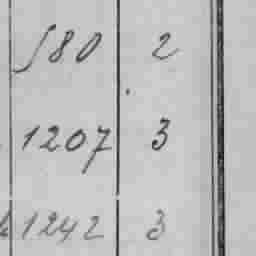 580 2
1207 3
1242 3